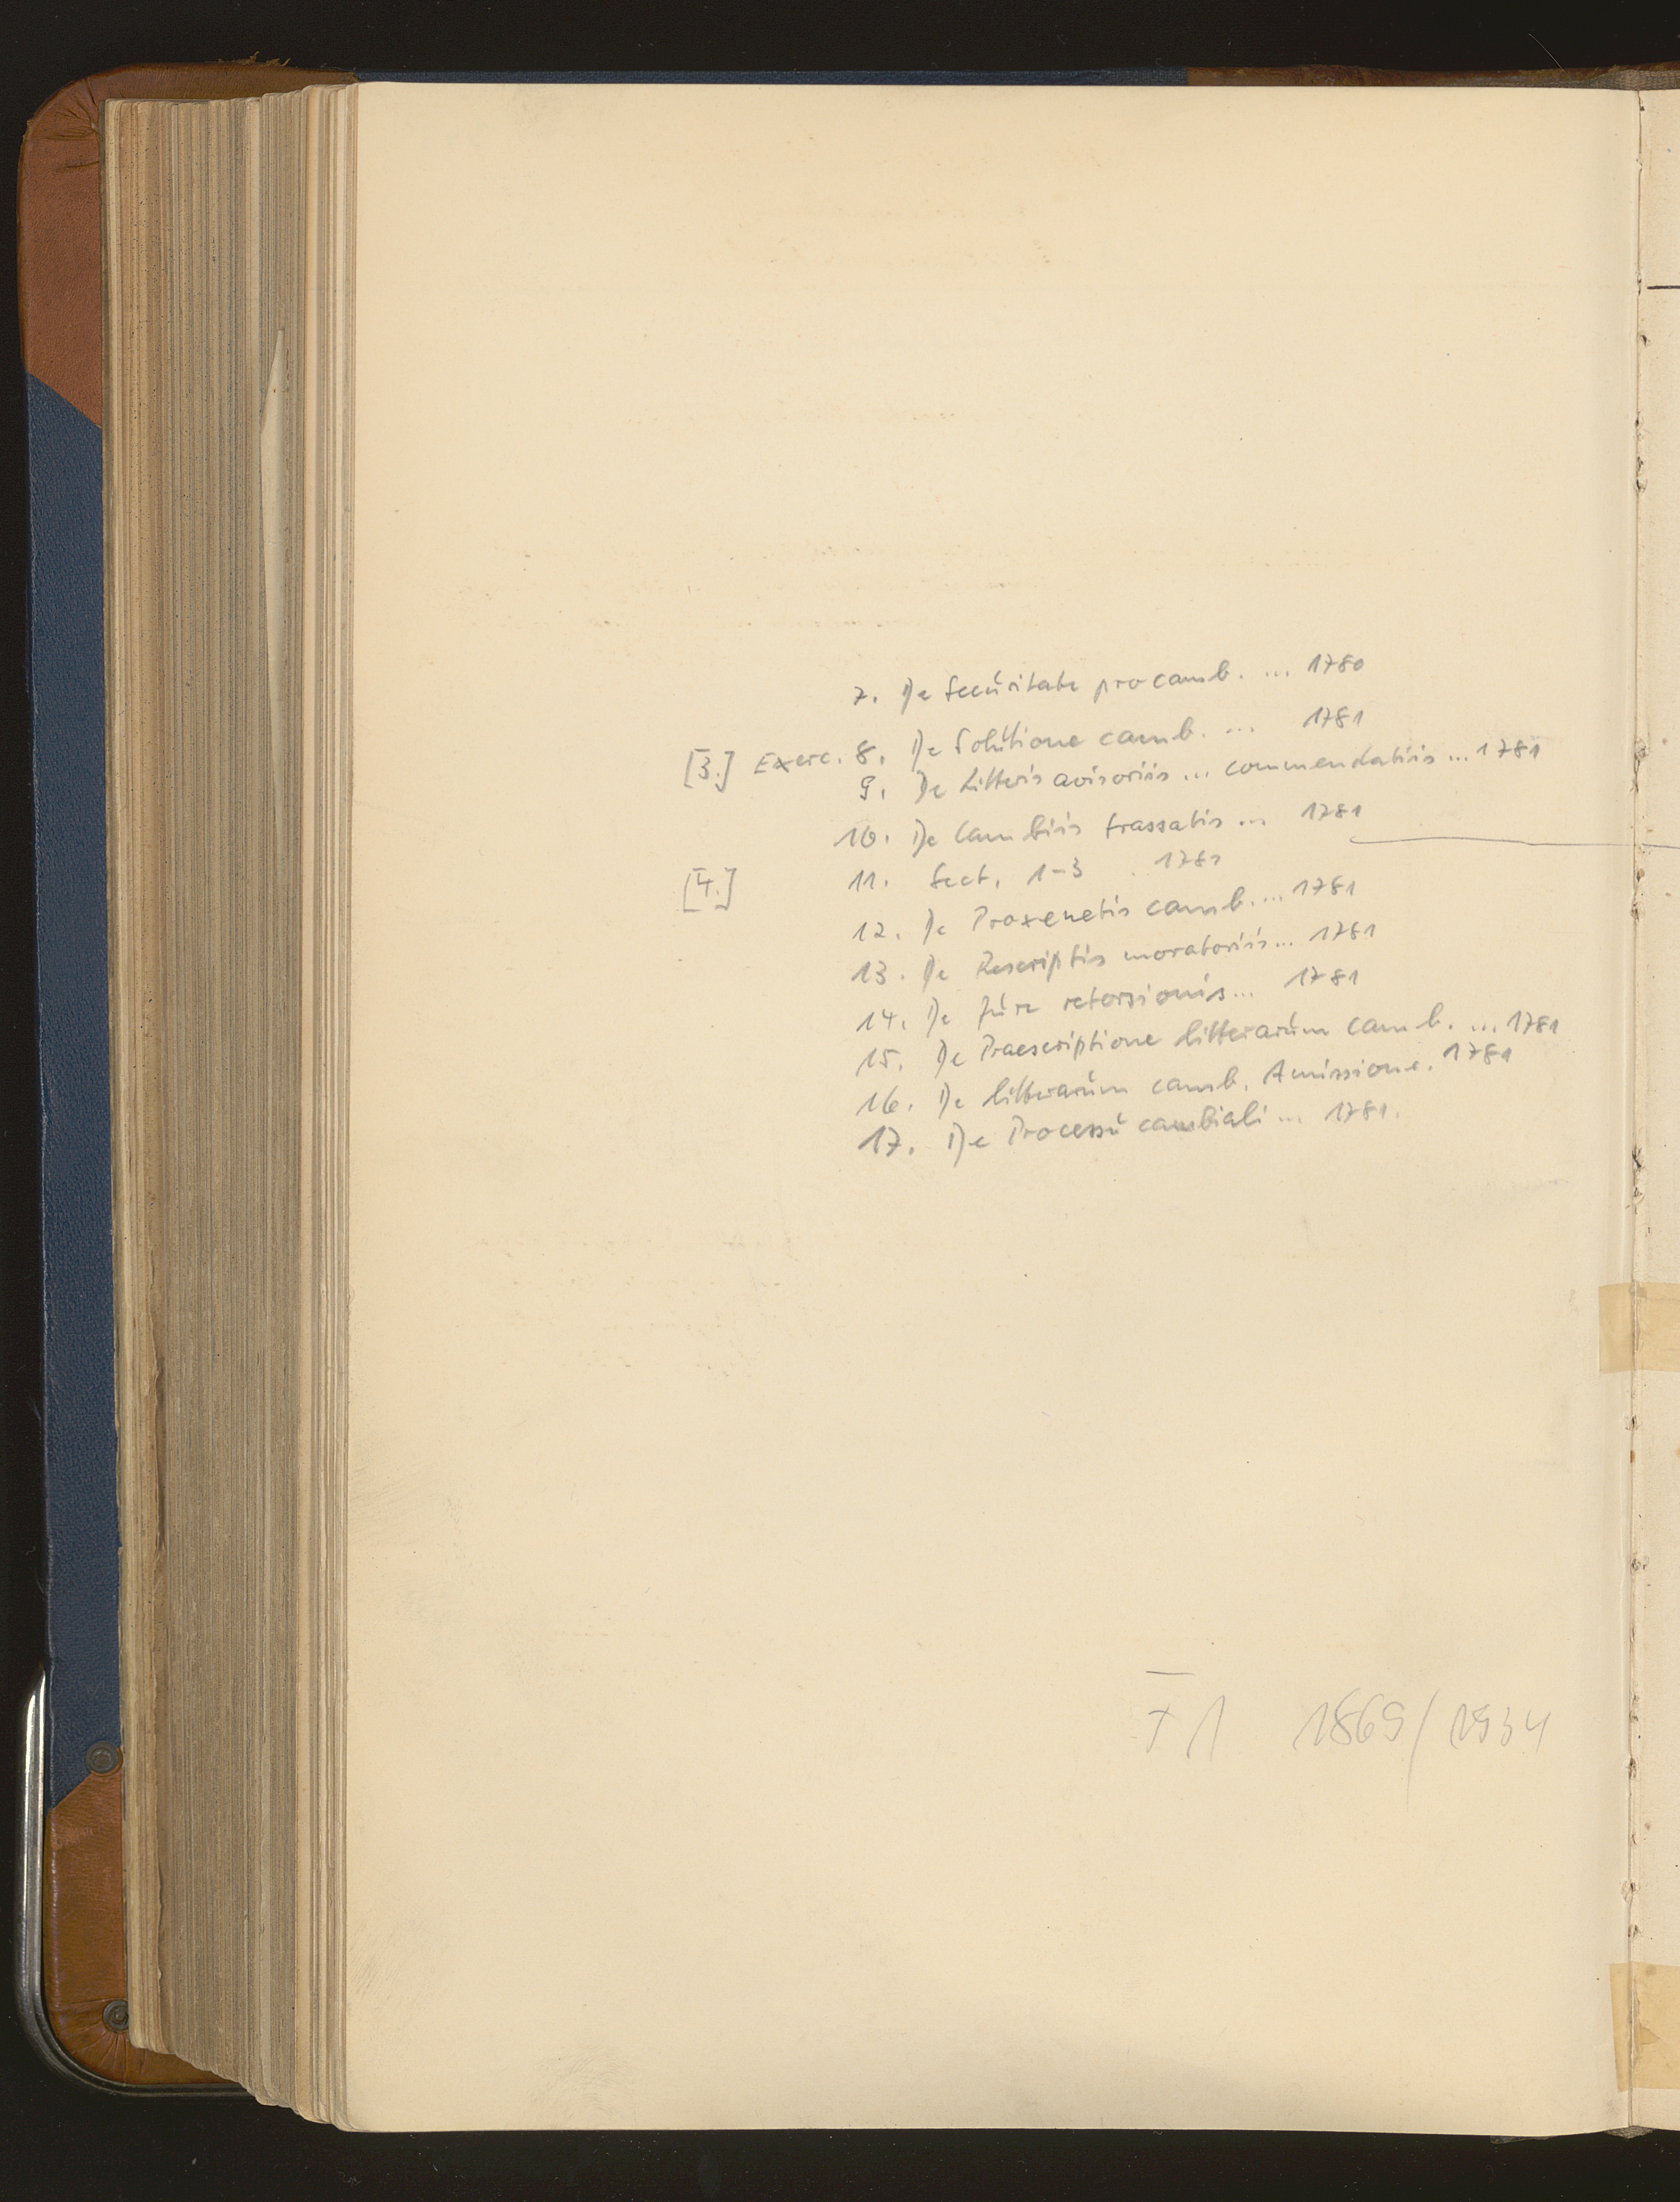 7. De Securitate pro camb. ... 1780
[3.] Exerc. 8. De Solutione camb. ... 1781
9. De Litteris avisoriis ... commendatiis ... 1781
10. De Cambiis trassatis ... 1781
[4.] 11. Sect. 1-3 1781
12. De Proxenetis camb. ... 1781
13. De Rescriptis moratoriis ... 1781
14. De Jure retorsionis ... 1781
15. De Praescriptione litterarum camb. ... 1781
16. De litterarum camb. Amissione. 1781
17. De Processu cambiali ... 1781.
1869/1934